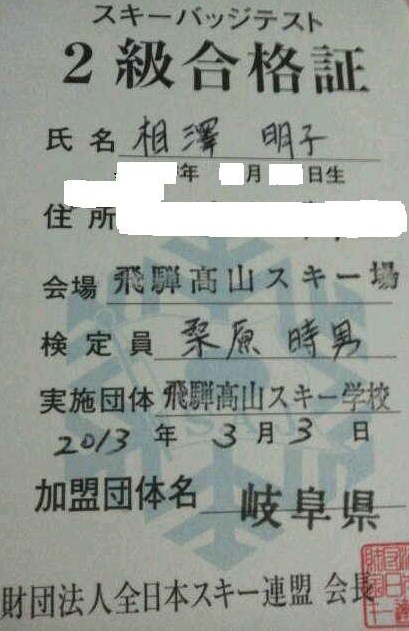 スキーバッジテスト
2級合格証
氏名 相澤 明子
年 月 日生
住所
会場 飛騨高山スキー場
検定員 栗原 時男
実施団体 飛騨高山スキー学校
2013 年 3 月 3 日
加盟団体名 岐阜県
財団法人全日本スキー連盟 会長